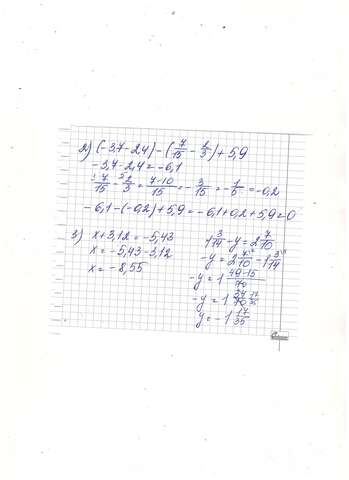 2) (-3,7-2,4)-(7/15-2/3)+5,9
-3,7-2,4=-6,1
7/15-2/3=7-10/15=-3/15=-1/5=-0,2
-6,1-(-0,2)+5,9=-6,1+0,2+5,9=0
3) x+3,12=-5,43
x=-5,43-3,12
x=-8,55
1 3/14-y=2 7/10
-y=2 7/10-1 3/14
-y=1 49-15/70
-y=1 34/70 17/35
y=-1 17/35